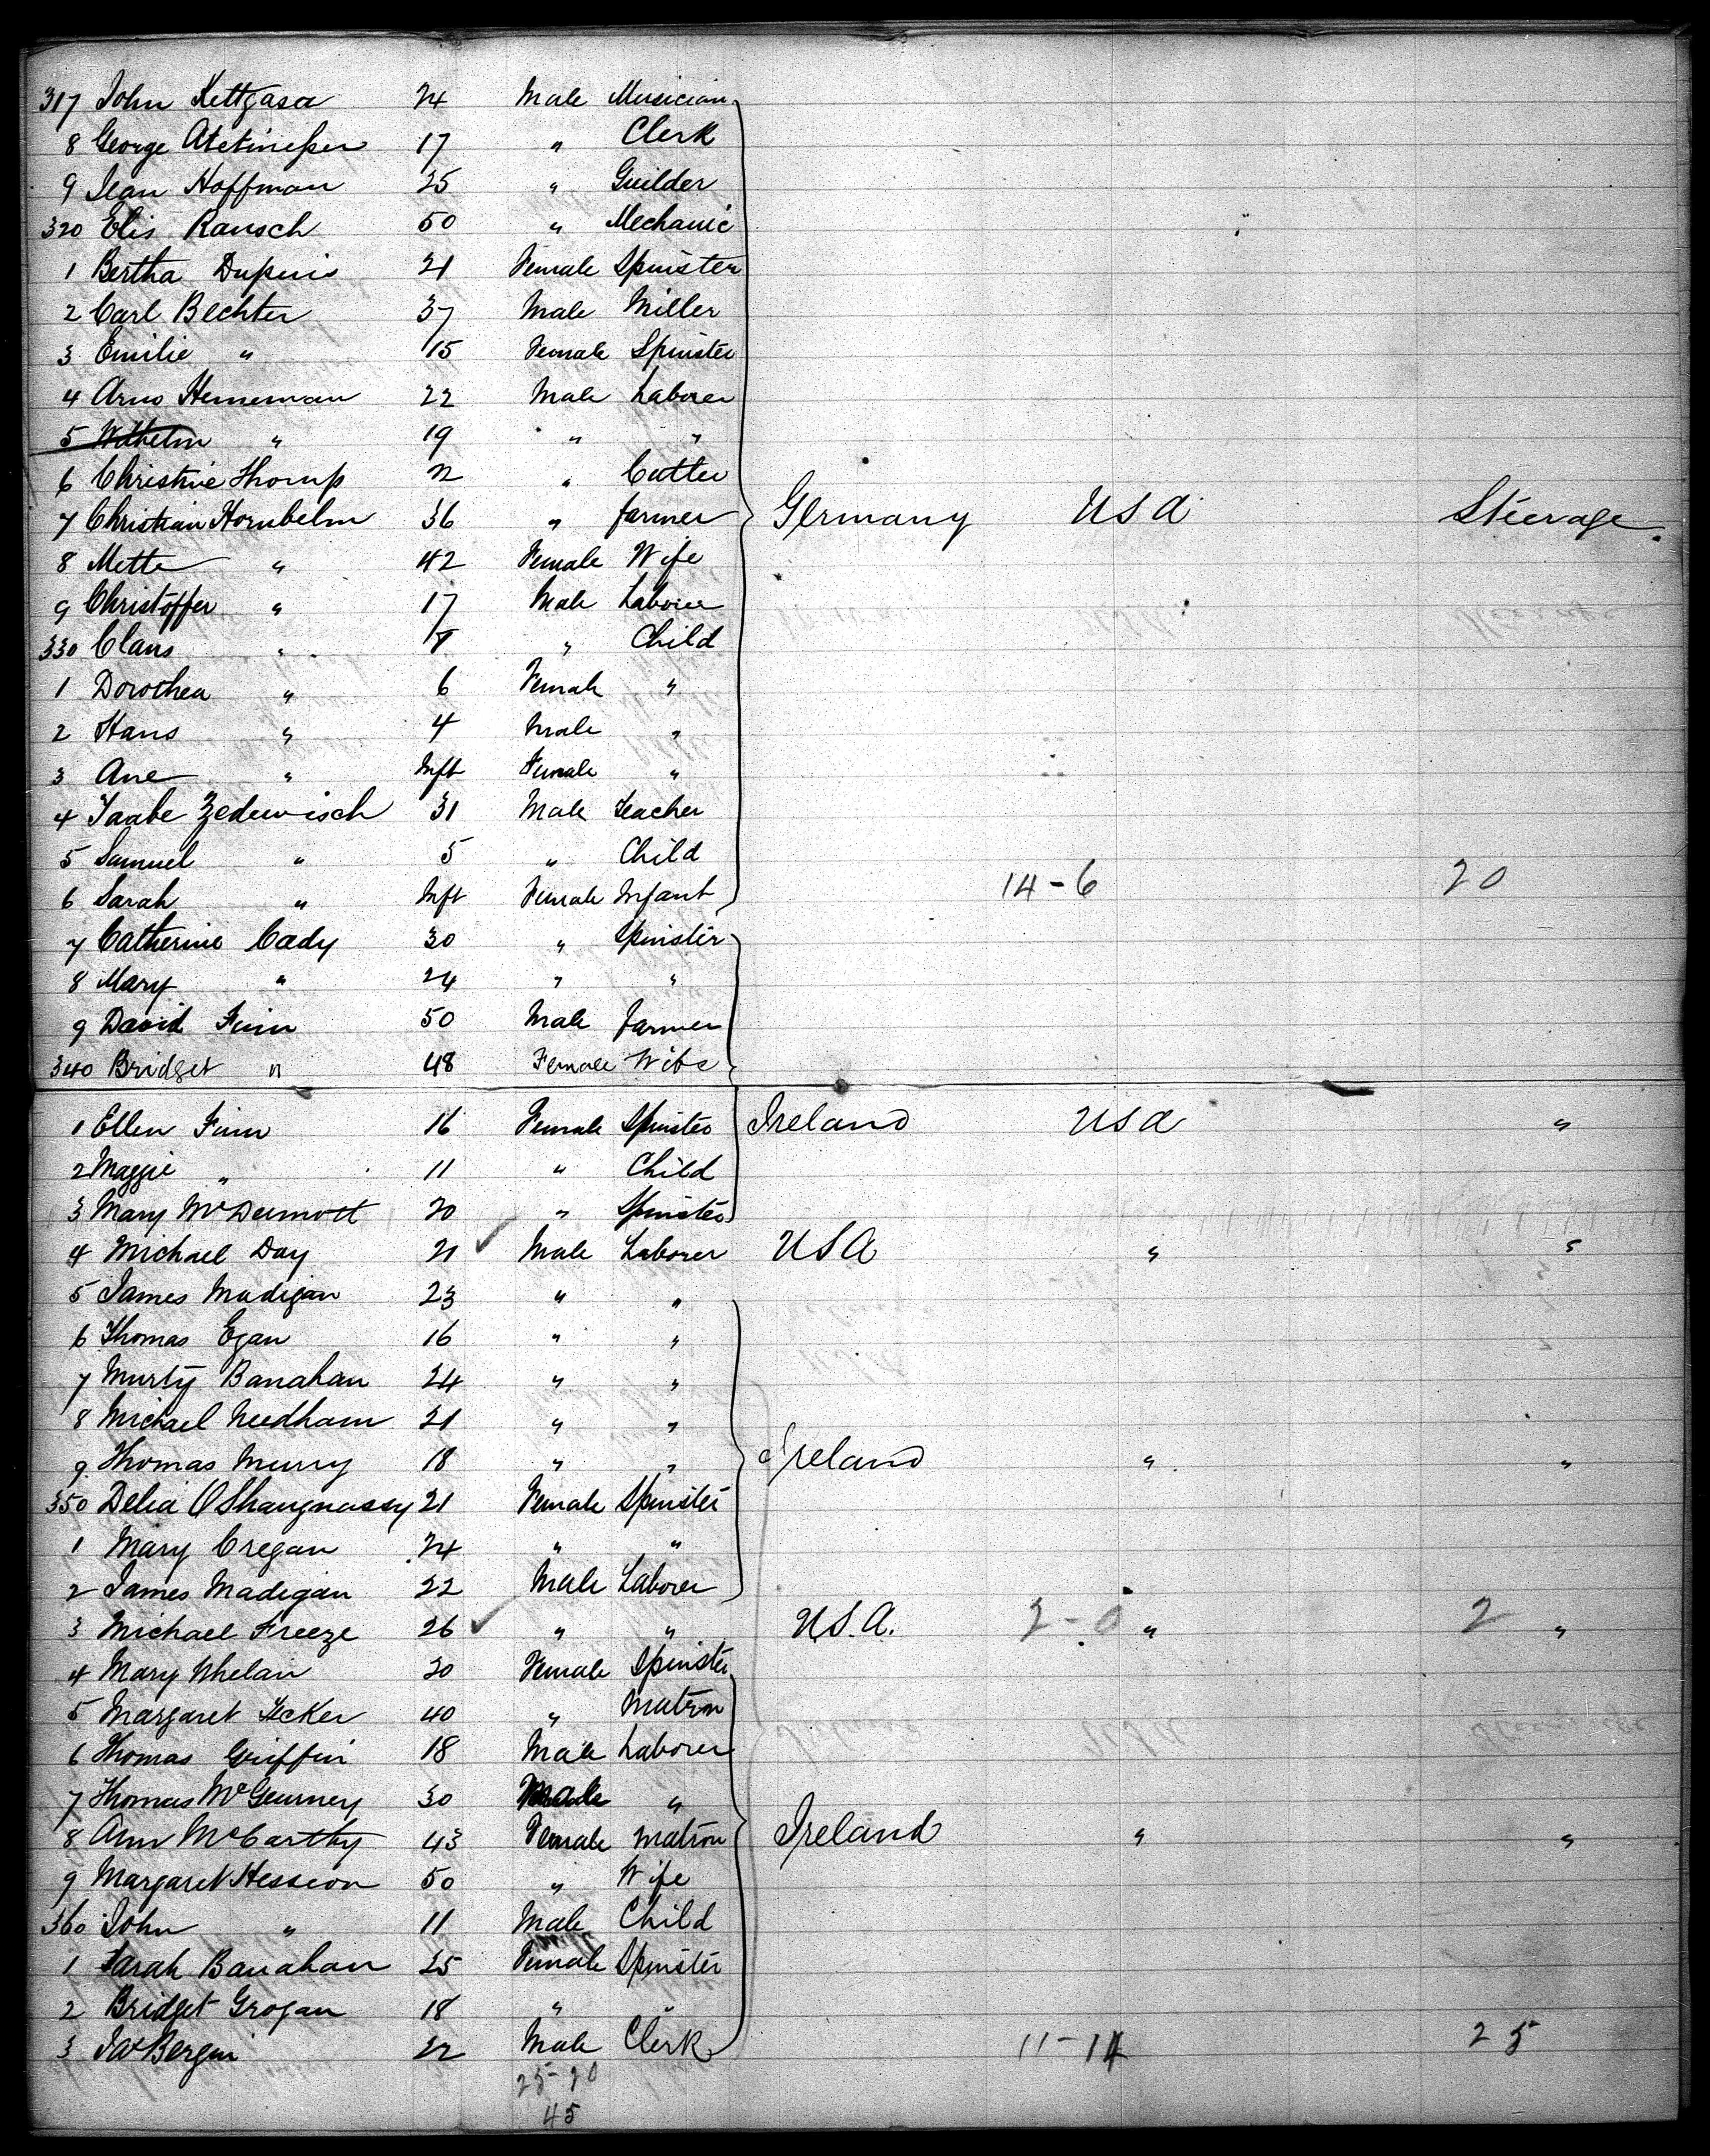 317 John Kettgasa 24 Male Musician
8 George 17 " Clerk
9 Jean Hoffman 25 " Guilder
320 Elis Rausch 50 " Mechanic
1 Bertha Dupuis 21 Female Spinster
2 Carl Bechter 37 Male Miller
3 Emilie " 15 Female Spinster
4 Arno Heineman 22 Male Laborer
5 Wilhelm " 19 " "
6 Christine Thomp 22 " Cutter
7 Christian Hornbelm 36 " farmer Germany USA Steerage
8 Mette " 42 Female Wife
9 Christoffer " 17 Male Laborer
330 Claus " " Child
1 Dorothea " 6 Female "
2 Hans " 4 Male "
3 Ane " Inft Female "
4 Taabe Zedewisch 31 Male Teacher
5 Samuel " 5 " Child
6 Sarah " Inft Female Infant 14-6 20
7 Catherine Cady 30 " Spinster
8 Mary " 24 " "
9 David Finn 50 Male farmer
340 Bridget " 48 Female Wife
1 Ellen Finn 16 Female Spinster Ireland USA "
2 Maggie " 11 " Child
3 Mary McDermott 20 " Spinster
4 Michael Day 21 ✓ Male Laborer USA " "
5 James Madigan 23 " "
6 Thomas Egan 16 " "
7 Murty Banahan 24 " "
8 Michael Needham 21 " "
9 Thomas Murry 18 " " Ireland " "
350 Delia O'Shaugnassy 21 Female Spinster
1 Mary Cregan 24 " "
2 James Madigan 22 Male Laborer
3 Michael Freeze 26 ✓ " " U.S.A. 2-0 " 2 "
4 Mary Whelan 20 Female Spinster
5 Margaret Hcker 40 " Matron
6 Thomas Griffin 18 Male Laborer
7 Thomas McGeurney 30 Male "
8 Ann McCarthy 43 Female Matron Ireland " "
9 Margaret Hession 50 " Wife
360 John " 11 Male Child
1 Sarah Banahan 25 Female Spinster
2 Bridget Grogan 18 " "
3 Jas Bergin 22 Male Clerk 11-14 25
25-20
45